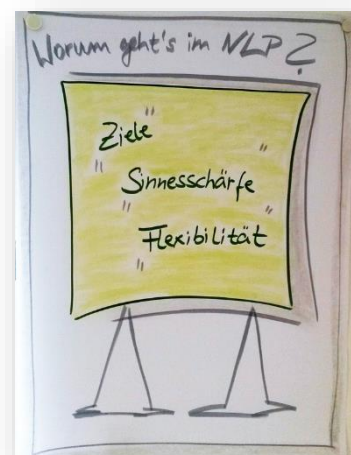 Worum geht's im NLP?
Ziele
Sinnesschärfe
Flexibilität